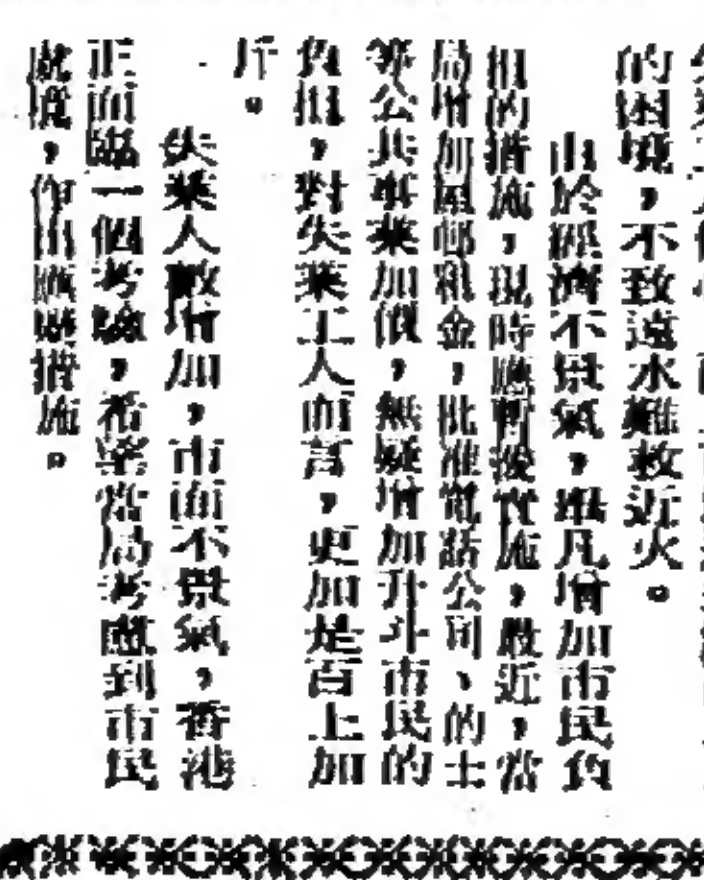 的困境，不致遠水難救近火。
由於經濟不景氣，舉凡增加市民負
担的措施，現時應暫緩實施，最近，當
局增加屋邨租金，批准電話公司、的士
等公共事業加價，無疑增加升斗市民的
負担，對失業工人而言，更加是百上加
斤。
失業人數增加，市面不景氣，香港
正面臨一個考驗，希望當局考慮到市民
處境，作出應變措施。